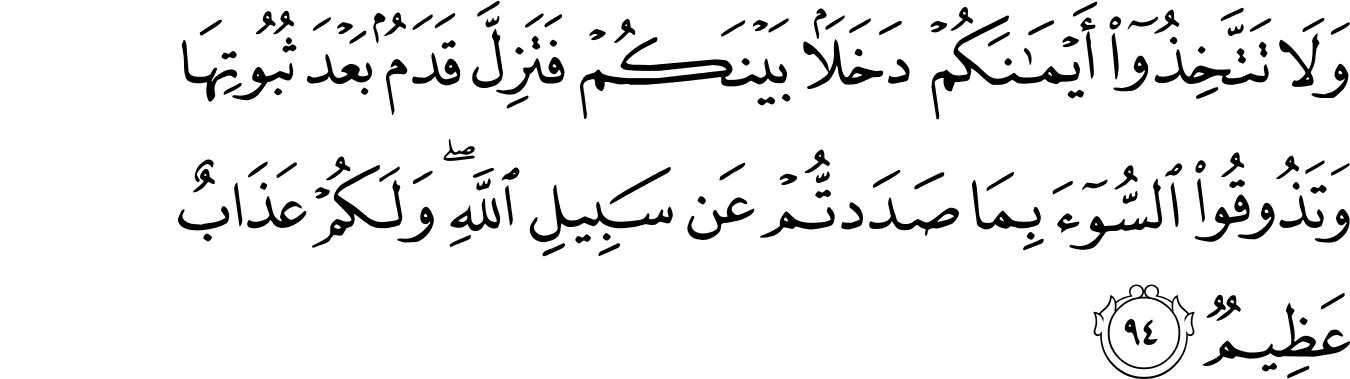 وَلَا تَتَّخِذُوٓا۟ أَيْمَـٰنَكُمْ دَخَلًۢا بَيْنَكُمْ فَتَزِلَّ قَدَمٌۢ بَعْدَ ثُبُوتِهَا
وَتَذُوقُوا۟ ٱلسُّوٓءَ بِمَا صَدَدتُّمْ عَن سَبِيلِ ٱللَّهِ ۖ وَلَكُمْ عَذَابٌ
عَظِيمٌ ٩٤